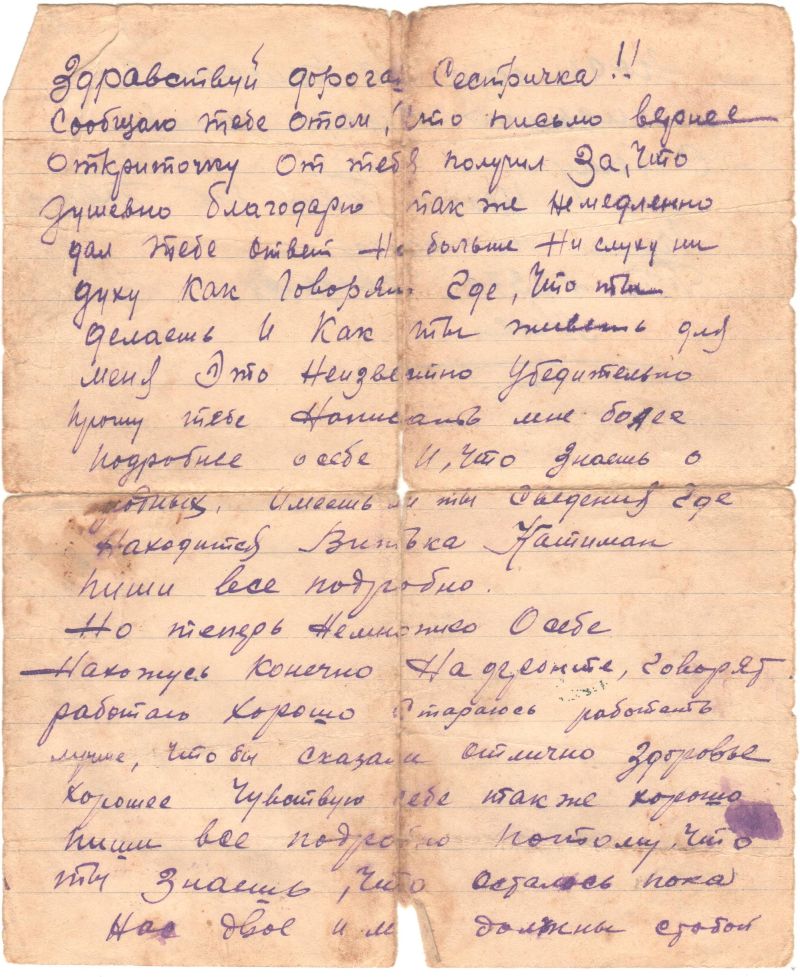 Здравствуй дорогая Сестричка!!
Сообщаю тебе отом, что письмо вернее
открыточку От тебя получил За, Что
душевно благодарю так же немедленно
дал тебе ответ Но больше Ни слуху ни
духу Как Говорят Где, Что ты
делаешь И Как ты живешь для
меня Это Неизвестно Убедительно
прошу тебе Написать мне более
подробнее осебе И, Что знаешь о
родных. Имеешь ли ты Сведения Где
Находится Витька
пиши все подробно.
Но теперь Немножко О себе
Нахожусь Конечно На Говорят
работаю хорошо Стараюсь работать
лучше, Что бы сказали отлично Здоровье
хорошее Чувствую себе также хорошо
пиши все подробно потому, Что
ты Знаешь, Что осталось пока
Нас двое и мы должны стобой